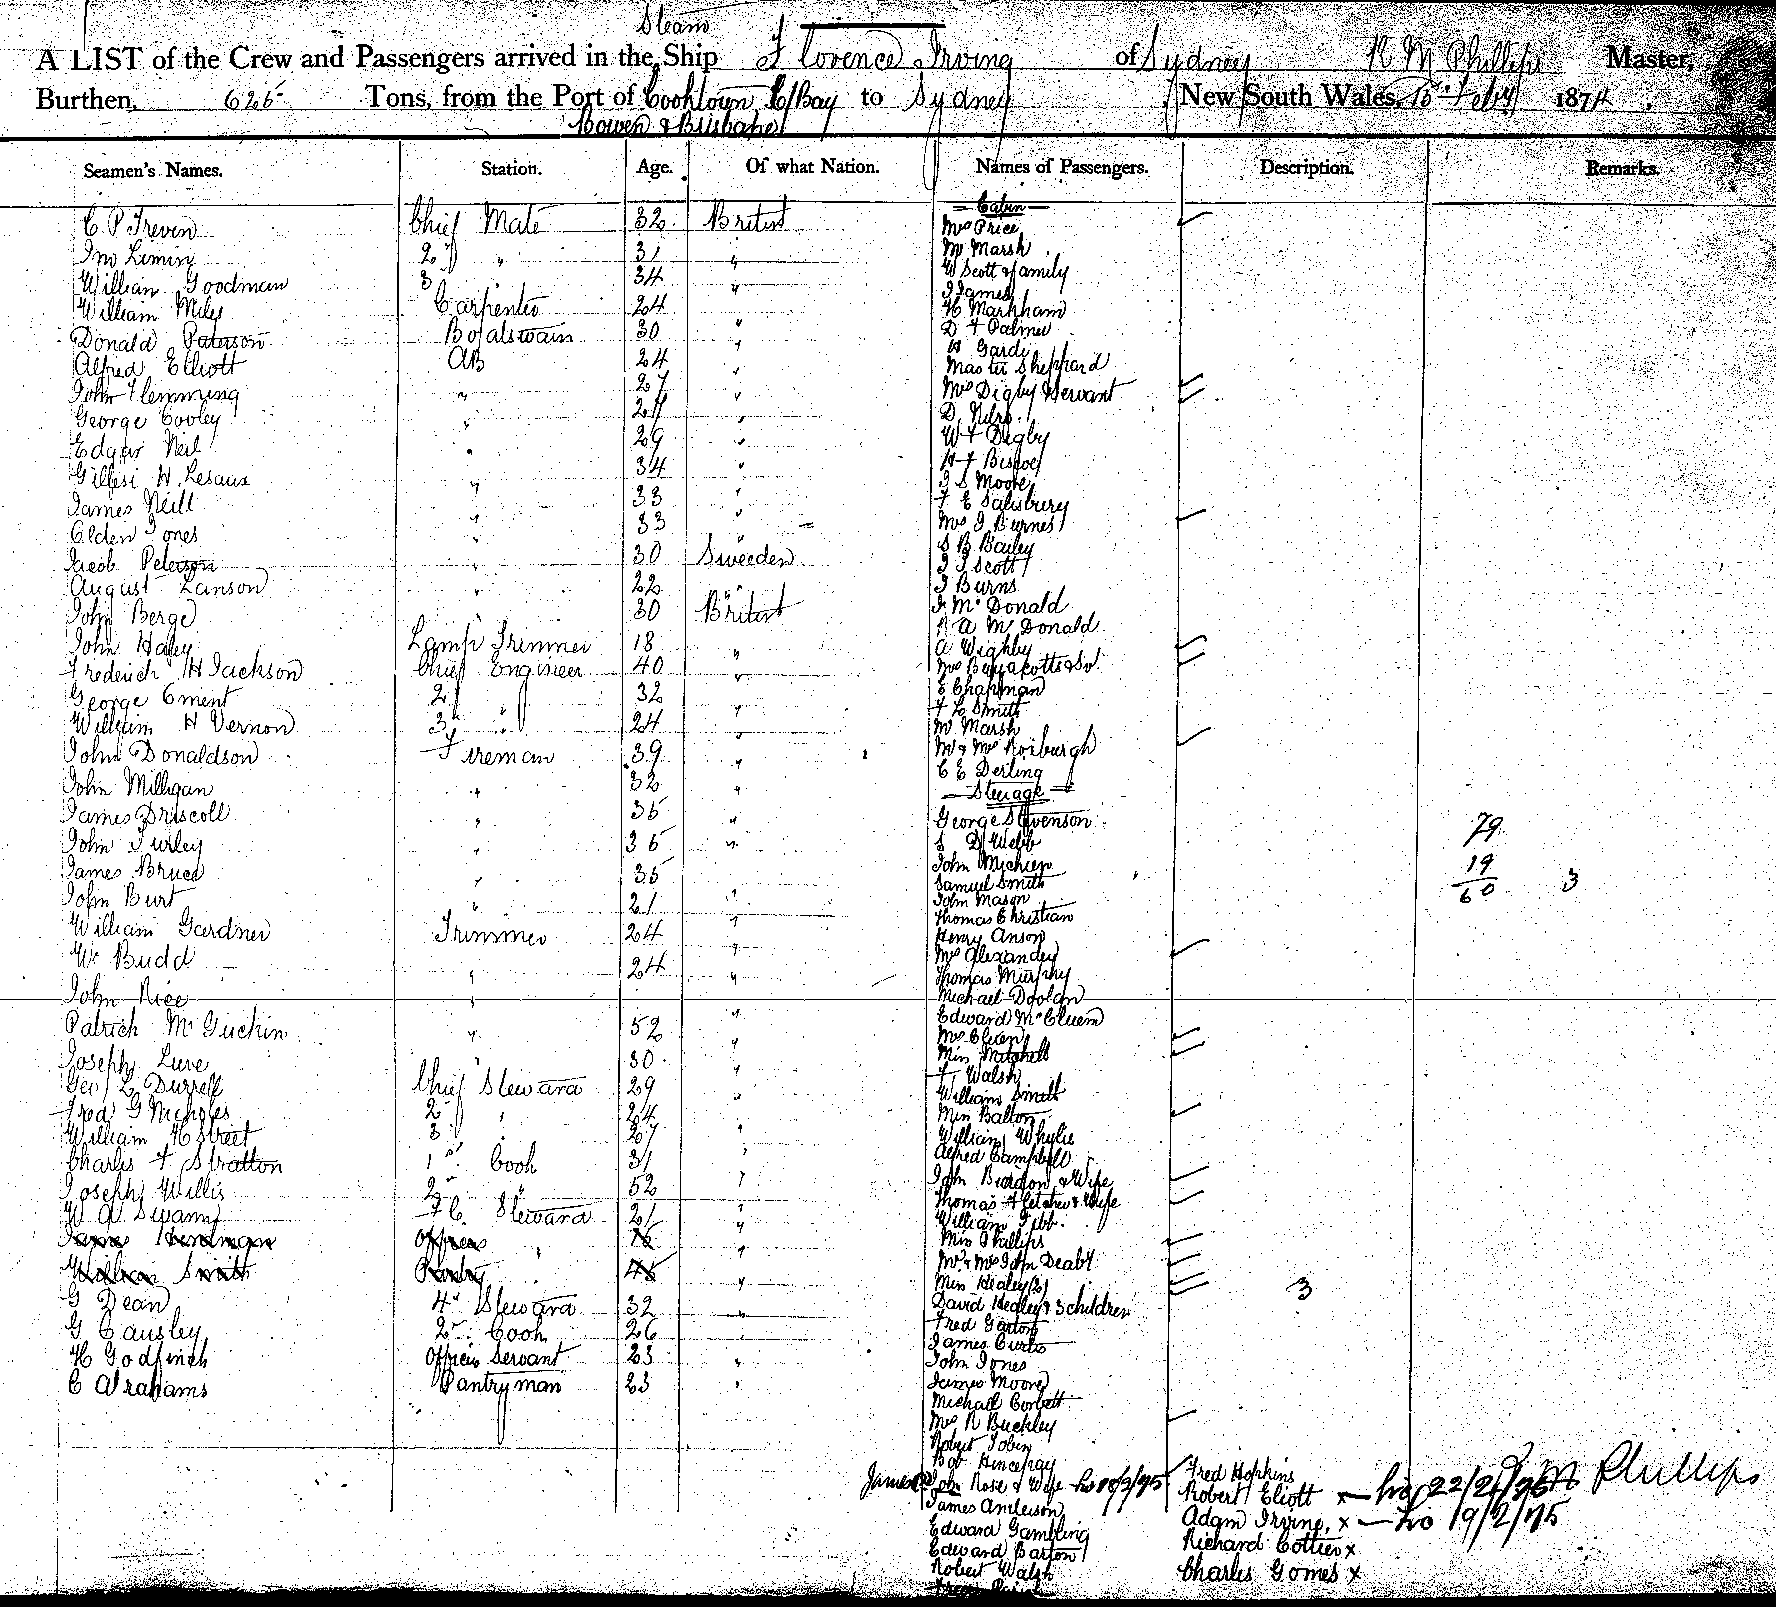 Steam
A LIST of the Crew and Passengers arrived in the Ship Florence Irving of Sydney R M Phillips Master,
Burthen, 625 Tons, from the Port of Cooktown C/Bay to Sydney New South Wales, 15 Feby 187
Bowen & Brisbane
Seamen's Names. Station. Age. Of what Nation. Names of Passengers. Description. Remarks.
Cabin
C P Treven Chief Mate 32 British Mrs Price
Jno 2 " 31 " Mr Marsh
William Goodman 3 34 " W Scott & family
J James
William Miles Carpenter 24 H Markham
Donald Paterson Boatswain 30 " D F Palmer
H Gardi
Alfred Elliott AB 24 " Master Sheppard
John Flemming " 27 " Mrs Digby & Servant
George Cooley " 24 " D
Edgar Neil " 29 " W F Digby
Gillesi H. Lesaux " 34 " H F Biscoe
J S Moore
James Neill " 33 " F E Salisbury
Olden Jones " 33 " Mrs J Burnes
Jacob Peterson " 30 Sweeden S B Bailey
J J Scott
August Lanson " 22 " J Burns
John Berge 30 British J. McDonald
A McDonald
John Haley Lamp Trimmer 18 " A Wighby
Frederick H Jackson Chief Engineer 40 " Mrs
George Cment 2 " 32 " E Chapman
F L Smith
William H Vernon 3 " 24 " Mr Marsh
John Donaldson Fireman 39 " Mr & Mrs Roxburgh
C E Derling
John Milligan " 32 " Steerage
James Driscoll " 35 " George Stevenson
John Turley " 36 " S D Webb 79
James Bruce " 35 John Michien 19
Samuel Smith 60 3
John Burt " 21 " John Mason
Thomas Christian
William Gardner Trimmer 24 " Henry Anson
Wm Budd " 24 " Mrs Alexander
Thomas Murphy
John Rice " Michael Doolan
Patrick McGuckin " 52 " Edward McCluem
Mrs Cluem
Joseph Lure " 30 " Miss Mitchell
Geo L Durrell Chief Steward 29 " F Walsh
William Smith
Fred G Nicholes 2 " 24 " Miss Balton
William H Street 3 27 " William Whylie
Charles F Stratton 1st Cook 31 Alfred Campbell
Joseph Willis 2 " 52 " John Burdon & Wife
W A Swann F.C. Steward 21 " Thomas Fletcher & Wife
William Tibb
James Herdman Officers " 16 " Miss Phillips
William Smith Pantry " 45 " Mr & Mrs John Deabt
Miss Healey (2) 3
G Dean 4th Steward 32 " David Healey & 3 children
G Causley 2nd Cook 26 Fred Garton
James Curtis
H Godfinch Officers Servant 23 " John Jones
C Abrahams Pantryman 23 " James Moore
Michael Corbett
Mrs R Buckley
Robert Tobin
Bob
James John Rose & Wife 18/2/75 Fred Hopkins R M Phillips
James Anderson Robert Eliott x 22/2/75
Edward Gambling Adam Irvine, x 19/2/75
Edward Barton Richard Cottier x
Robert Walsh Charles Gomes x